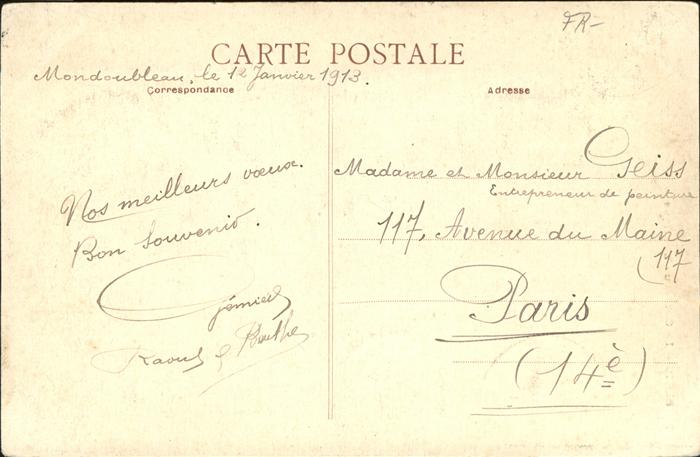 FR-
CARTE POSTALE
Mondoubleau, le 12 Janvier 1913.
Correspondance
Nos meilleurs vœux.
Bon Souvenir.
Raoul & Berthe
Adresse
Madame et Monsieur Geiss
Entrepreneur de peinture
117, Avenue du Maine
(117
Paris
(14è)